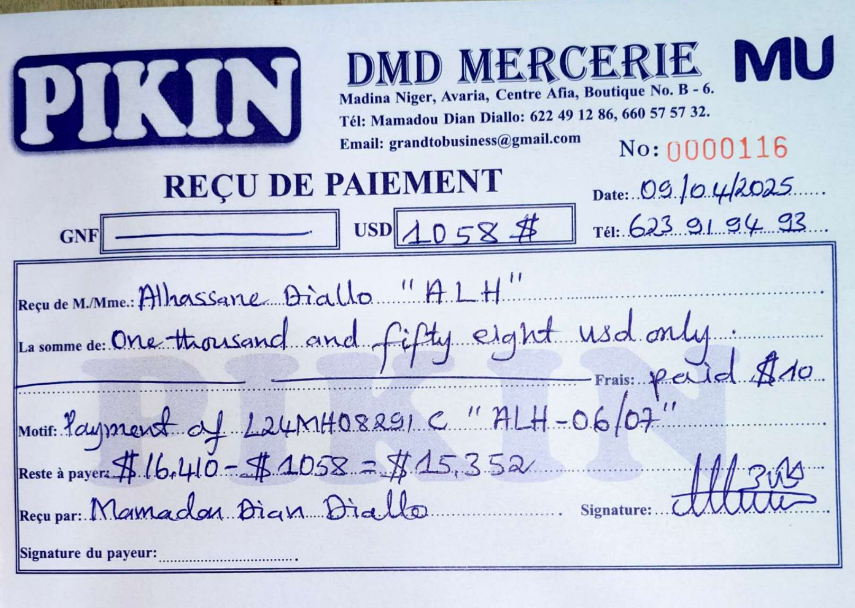 PIKIN
DMD MERCERIE
MU
Madina Niger, Avaria, Centre Afia, Boutique No. B - 6.
Tél: Mamadou Dian Diallo: 622 49 12 86, 660 57 57 32.
Email: grandtobusiness@gmail.com
No: 0000116
REÇU DE PAIEMENT
Date: 09/04/2025
GNF
USD 1058 $
Tél: 623 91 94 93
Reçu de M./Mme.: Alhassane Diallo "ALH"
La somme de: One thousand and fifty eight usd only.
Frais: paid $10
Motif: Payment of L24MH08291 C "ALH-06/07"
Reste à payer: $16,410-$1058 = $15,352
Reçu par: Mamadou Dian Diallo
Signature:
Signature du payeur:
PIKIN